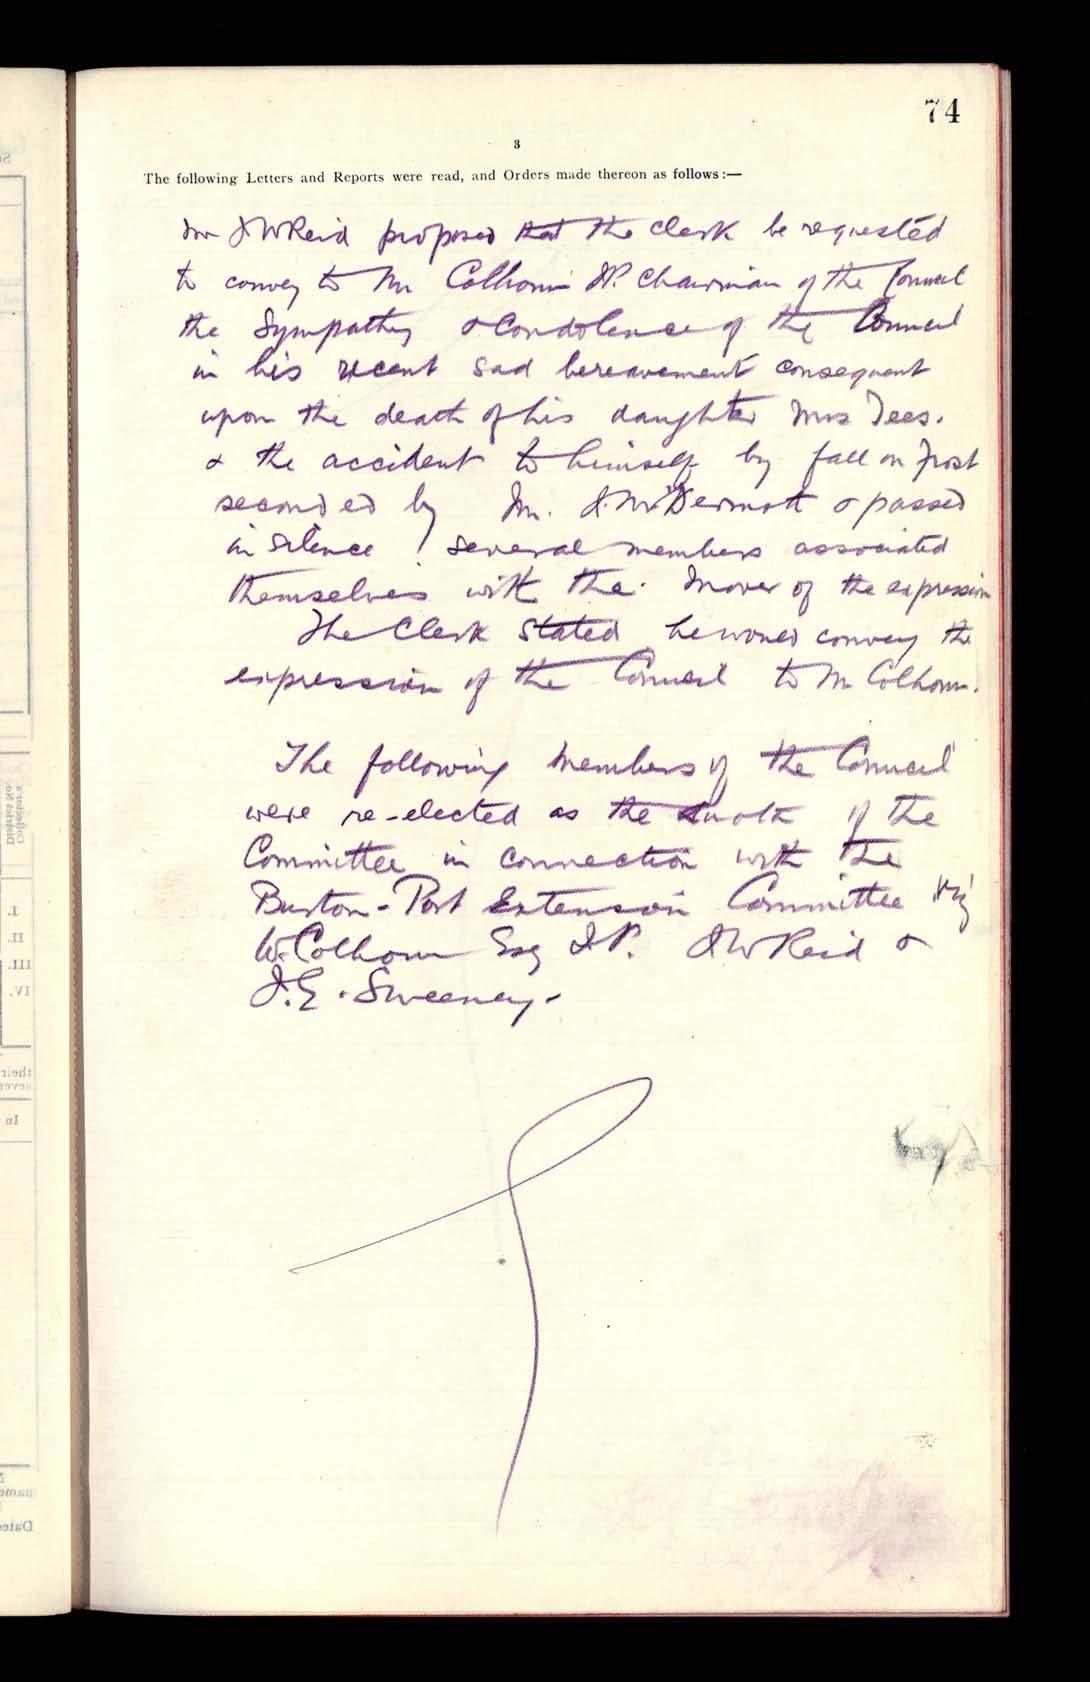 74
3
The following Letters and Reports were read, and Orders made thereon as follows:—
Mr J W Reid proposed that the Clerk be requested
to convey to Mr Colhoun J.P. Chairman of the Council
the Sympathy & Condolence of the Council
in his recent sad bereavement consequent
upon the death of his daughter Mrs Tees.
& the accident to himself by fall on frost
seconded by Mr. J. McDermott & passed
in silence several members associated
themselves with the mover of the expression
The Clerk stated he would convey the
expression of the Council to Mr Colhoun.
The following members of the Council
were re-elected as the of the
Committee in connection with the
Burton-Port Extension Committee Viz
W. Colhoun Esq J.P. J W Reid &
J.E. Sweeney.
District No.
Collector's
I.
II.
III.
IV.
their
In
name
Dated